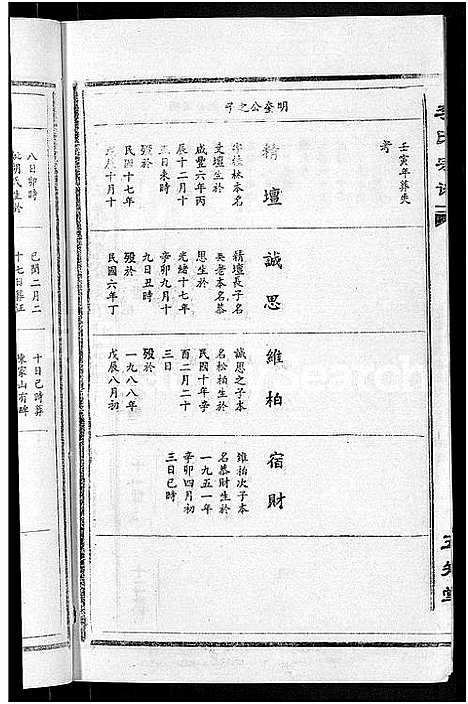 壬寅年葬失
考
明奎公之子
精壇
字桂林本名
文壇生於
咸豐六年丙
辰十二月十
三日未時
歿於
民國十七年
戊辰十月十
誠思
精壇長子名
長老本名慕
思生於
光緒十七年
辛卯九月十
九日丑時
歿於
民國六年丁
維柏
誠思之子本
名松柏生於
民國十年辛
酉二月二十
三日
歿於
一九八八年
戊辰八月初
宿財
維柏次子本
名恭財生於
一九五一年
辛卯四月初
三日巳時
八日卯時
胡氏生於
己閏二月二
十七日葬江
十日巳時葬
陳家山有碑